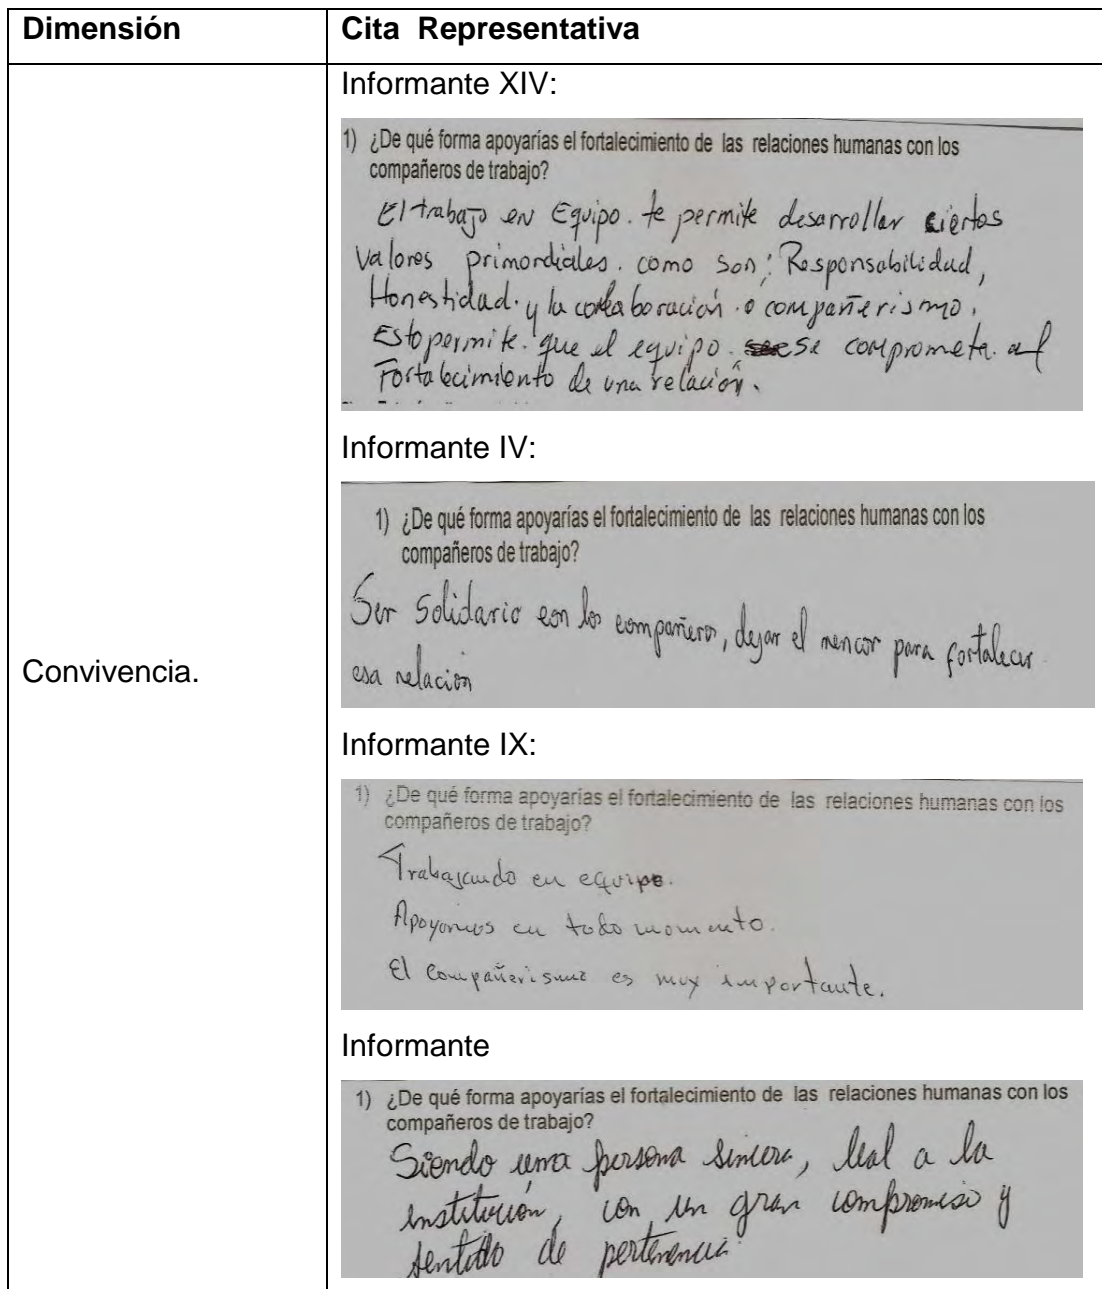 Dimensión
Cita Representativa
Convivencia.
Informante XIV:
1) ¿De qué forma apoyarías el fortalecimiento de las relaciones humanas con los
compañeros de trabajo?
El trabajo en Equipo. te permite desarrollar ciertos
valores primordiales. como son; Responsabilidad,
Honestidad. y la colaboración o compañerismo.
Esto permite. que el equipo. se comprometa. al
Fortalecimiento de una relación.
Informante IV:
1) ¿De qué forma apoyarías el fortalecimiento de las relaciones humanas con los
compañeros de trabajo?
Ser Solidario con los compañeros, dejar el rencor para fortalecer
esa relación
Informante IX:
1) ¿De qué forma apoyarías el fortalecimiento de las relaciones humanas con los
compañeros de trabajo?
Trabajando en equipo.
Apoyarnos en todo momento.
El compañerismo es muy importante.
Informante
1) ¿De qué forma apoyarías el fortalecimiento de las relaciones humanas con los
compañeros de trabajo?
Siendo una persona sincera, leal a la
institución, con un gran compromiso y
sentido de pertenencia